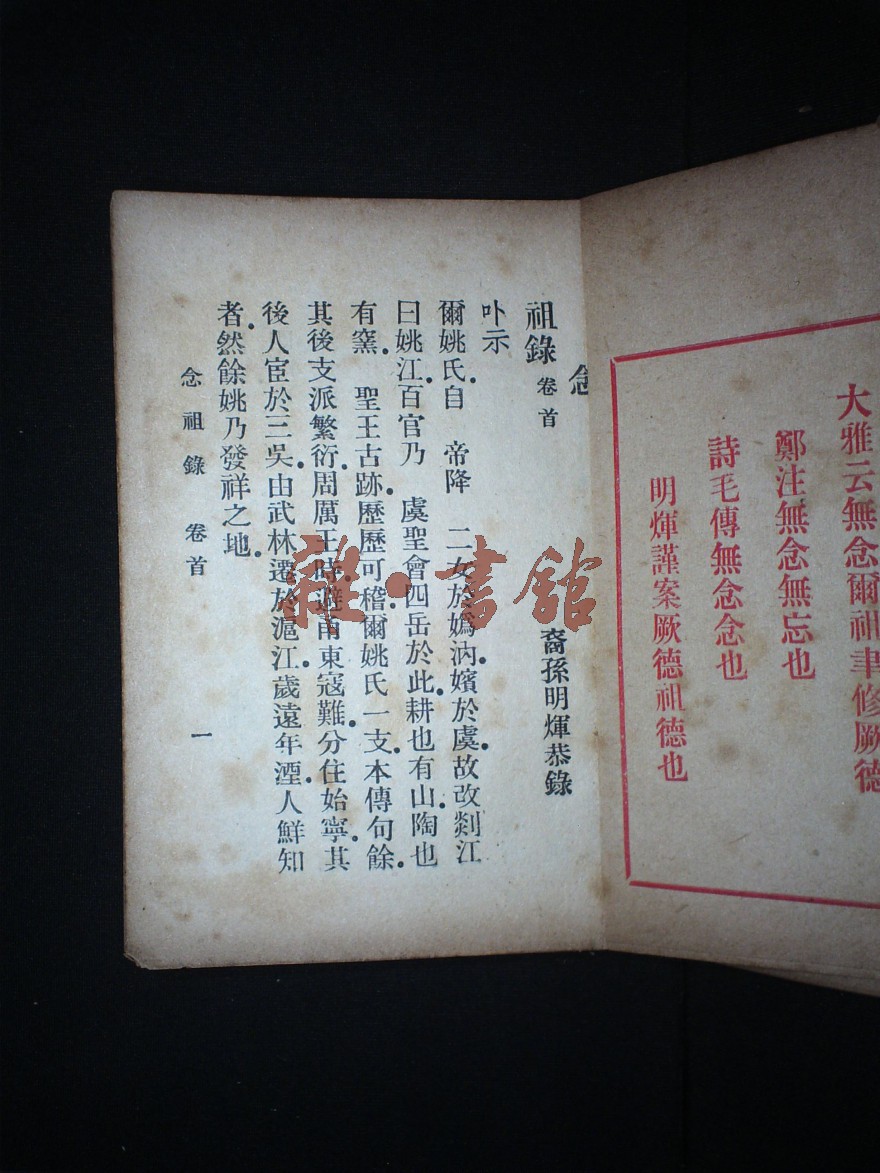 大雅云無念爾祖聿修厥德
鄭注無念無忘也
詩毛傳無念念也
明煇謹案厥德祖德也
念
祖錄 卷首
裔孫明煇恭錄
卟示
爾姚氏.自 帝降 二女於嬀汭.嬪於虞.故改剡江
曰姚江.百官乃 虞聖會四岳於此.耕也有山陶也
有窯. 聖王古跡.歷歷可稽.爾姚氏一支.本傳句餘.
其後支派繁衍.周厲王時.避甬東寇難.分住始寧.其
後人宦於三吳.由武林遷於滬江.歲遠年湮.人鮮知
者.然餘姚乃發祥之地.
念祖錄 卷首 一
雜·書館